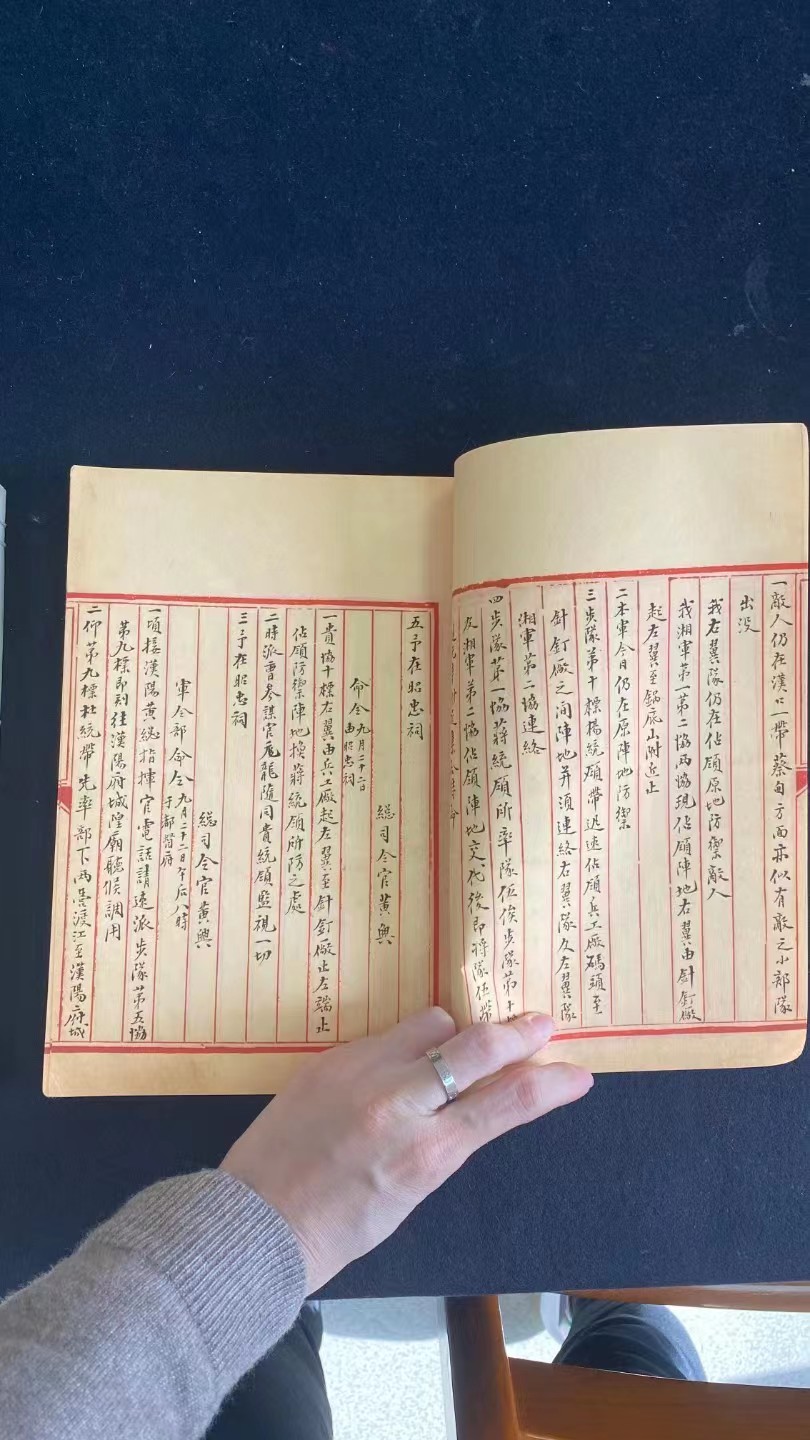 一敵人仍在漢口一帶蔡甸方面亦似有敵之小部隊
出没
我右翼隊仍在佔領原地防禦敵人
我湘軍第一第二協两協現佔領陣地右翼由針釘廠
起左翼至鍋底山附近止
二本軍今日仍在原陣地防禦
三步隊第十標楊統領帶迅速佔領兵工廠碼頭至
針釘廠之間陣地并須連絡右翼隊及左翼隊
湘軍第二協連絡
四步隊第一協蔣統領所率隊伍俟步隊第十
及湘軍第二協佔領陣地交代後即將隊伍帶
五予在昭忠祠
総司令官黃興
命令九月二十二日
由昭忠祠
一貴協十標右翼由兵工廠起左翼至針釘廠止左端止
佔領防禦陣地換蔣統領所防之處
二時派曾參謀官尾龍隨同貴統領監視一切
三予在昭忠祠
総司令官黃興
軍令部命令九月二十二日午后八時
于都督府
一項接漢陽黃総指揮官電話請速派步隊第五協
第九標即刻往漢陽府城隍廟聽候調用
二仰第九標杜統帶先率部下两營渡江至漢陽府城